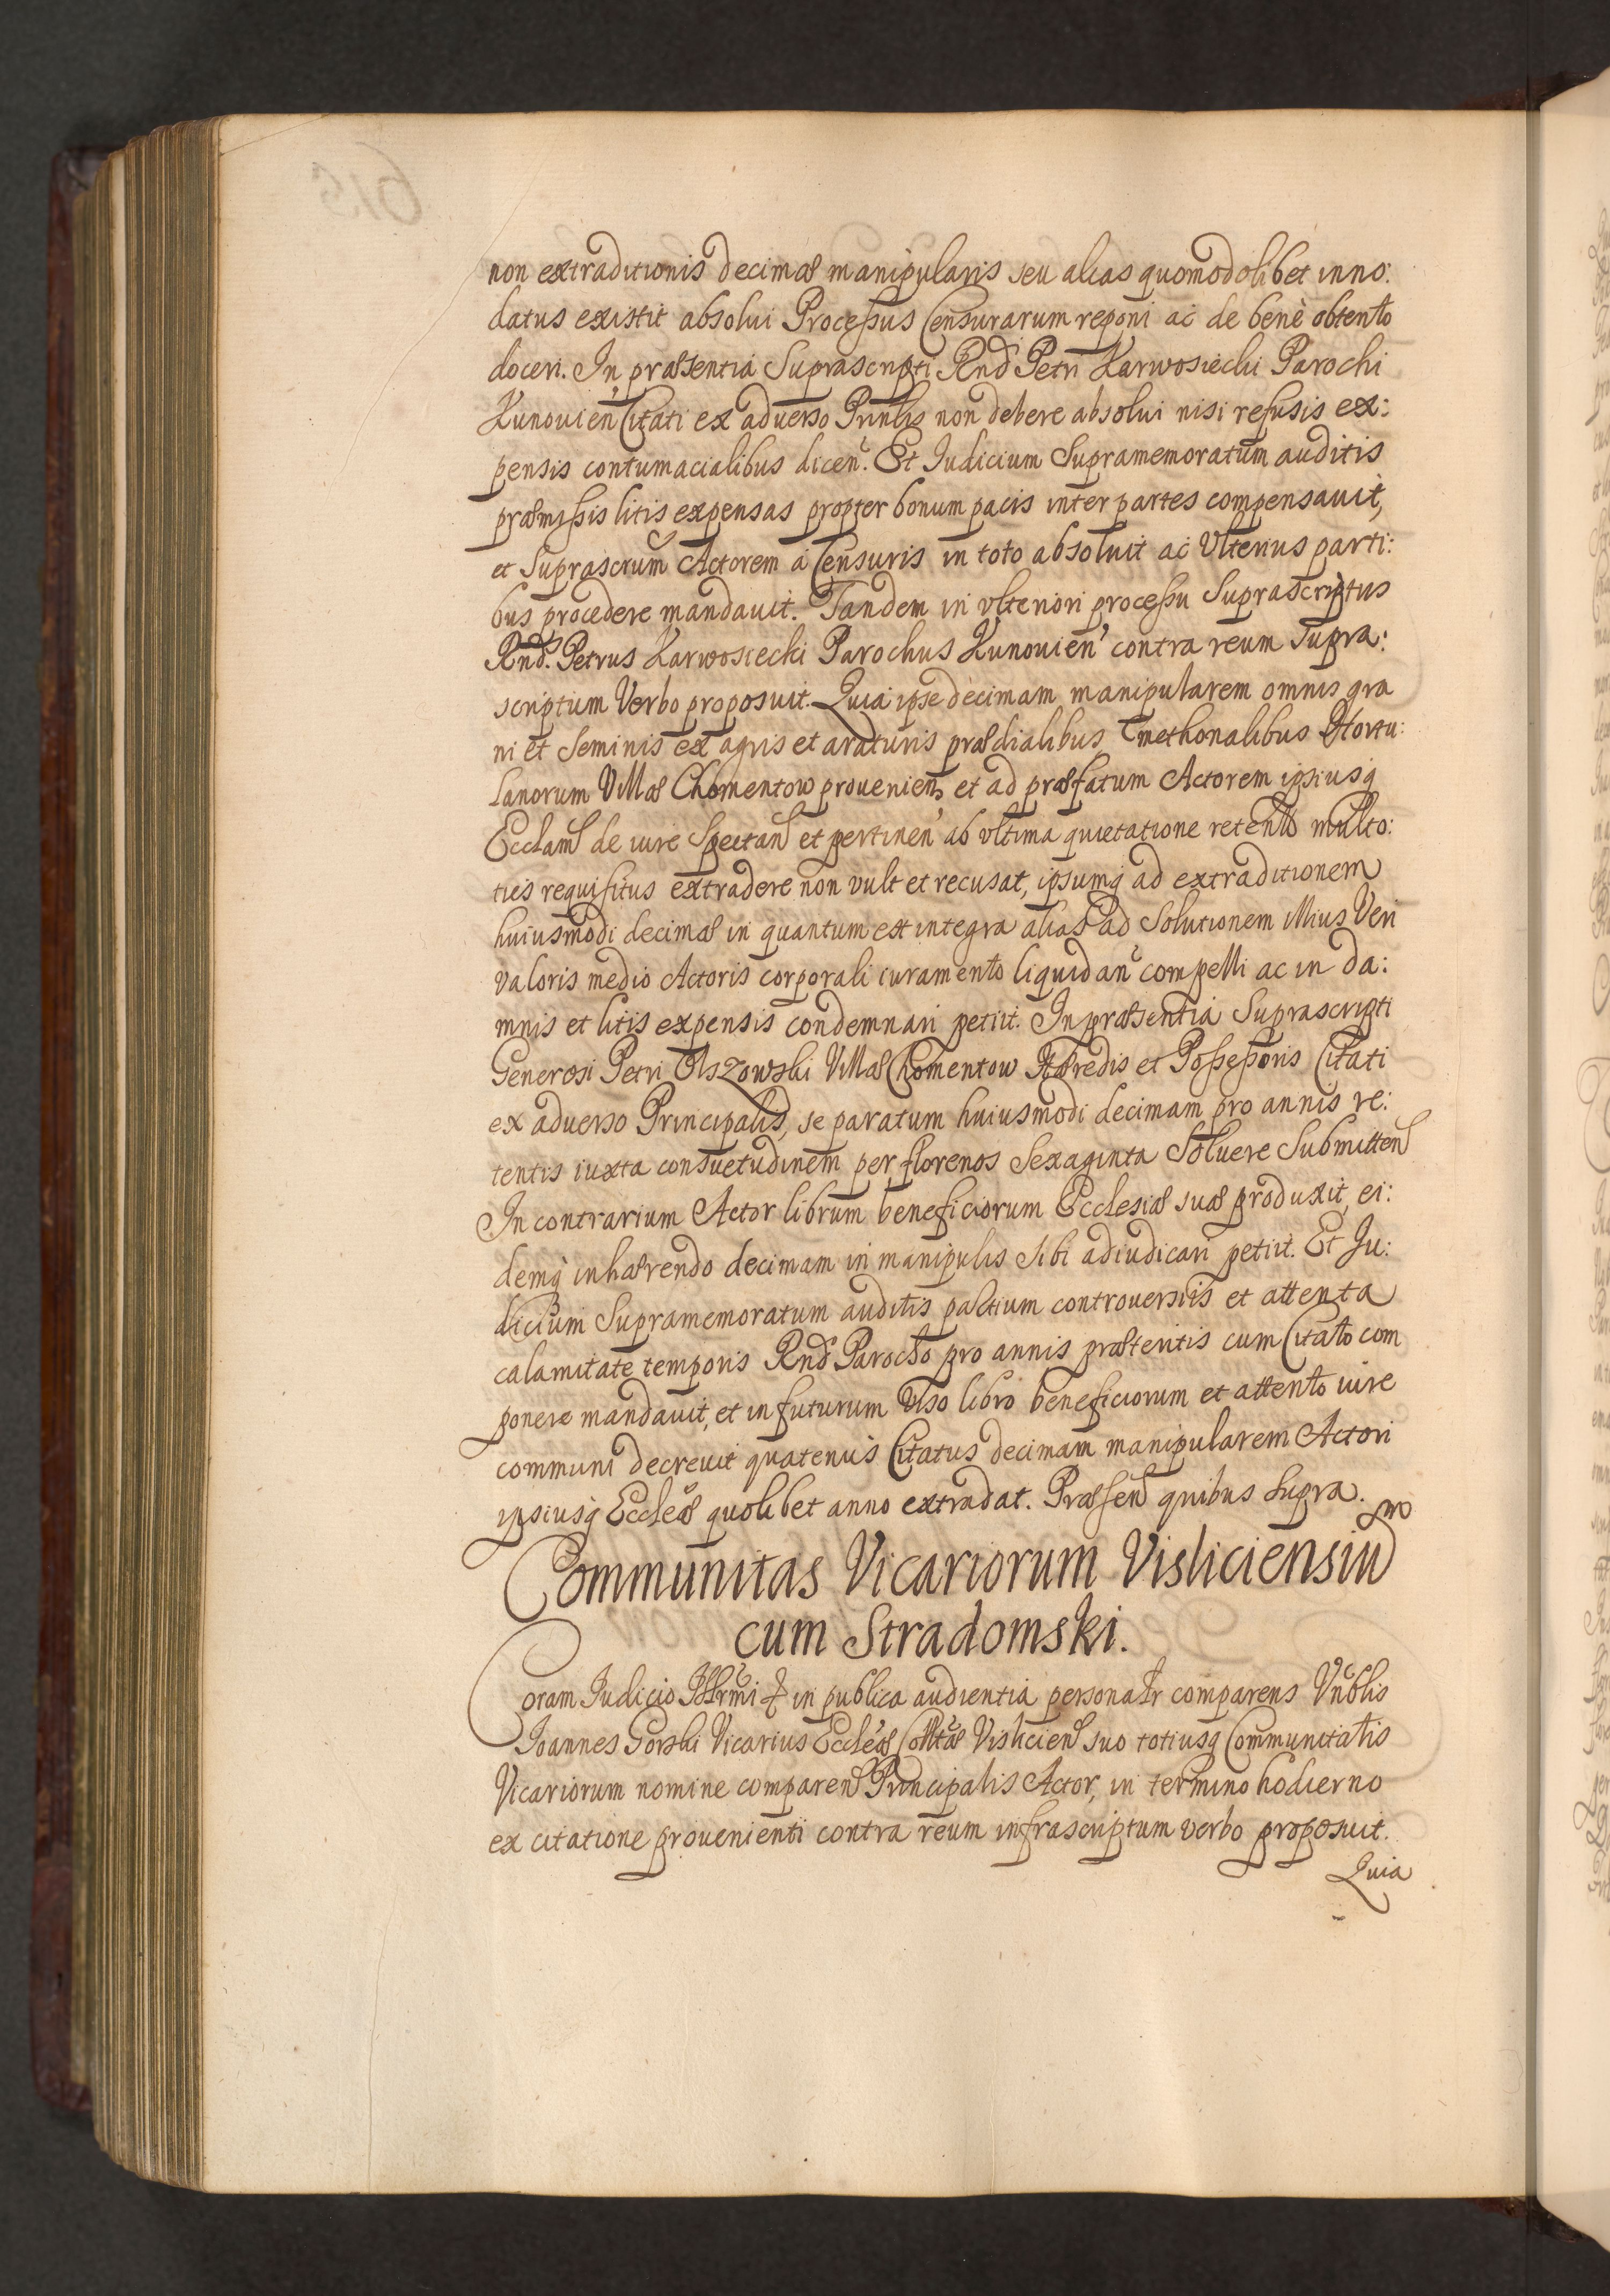 non extraditionis decimæ manipularis seu alias quomodolibet inno:
datus existit absolui Processus Censurarum reponi ac de benè obtento
doceri. In præsentia Suprascripti Rnd Petri Karwosiecki Parochi
Kunouien Citati ex aduerso Prinlis non debere absolui nisi refusis ex:
pensis contumacialibus dicen. Et Iudicium Supramemoratum auditis
præmissis litis expensas propter bonum pacis inter partes compensauit,
et Suprascrum Actorem à Censuris in toto absoluit ac Vlterius parti:
bus procedere mandauit. Tandem in vlteriori processu Suprascriptus
Rnds. Petrus Karwosiecki Parochus Kunouien contra reum supra:
scriptum Verbo proposuit. Quia ipse decimam manipularem omnis gra
ni et seminis ex agris et araturis prædialibus Cmethonalibus Hortu:
lanorum Villæ Chomentow prouenien et ad præfatum Actorem ipsiusq
Ecclam de iure Spectan et pertinen ab vltima quietatione retento multo:
ties requisitus extradere non vult et recusat, ipsumq ad extraditionem
huiusmodi decimæ in quantum est integra alias ad Solutionem illius Veri
valoris medio Actoris corporali iuramento liquidan compelli ac in da:
mnis et litis expensis condemnari petiit. In præsentia Suprascripti
Generosi Petri Olszowski Villæ Chomentow Hæredis et Possessoris Citati
ex aduerso Principalis, se paratum huiusmodi decimam pro annis re:
tentis iuxta consuetudinem per florenos Sexaginta Soluere Submitten
In contrarium Actor librum beneficiorum Ecclesiæ suæ produxit, ei:
demq inhærendo decimam in manipulis sibi adiudicari petiit. Et Iu:
dicium Supramemoratum auditis partium controuersiis et attenta
calamitate temporis Rnd Parocho pro annis præteritis cum Citato com
ponere mandauit, et in futurum Viso libro beneficiorum et attento iure
communi decreuit quatenus Citatus decimam manipularem Actori
ipsiusq Eccleæ quolibet anno extradat. Præsen quibus supra.
Communitas Vicariorum Visliciensiu
cum Stradomski.
Coram Iudicio Illrmi & in publica audientia personalr comparens Vnblis
Ioannes Gorski Vicarius Eccleæ Colltæ Vislicien suo totiusq Communitatis
Vicariorum nomine comparen Principalis Actor, in termino hodierno
ex citatione prouenienti contra reum infrascriptum verbo proposuit.
Quia